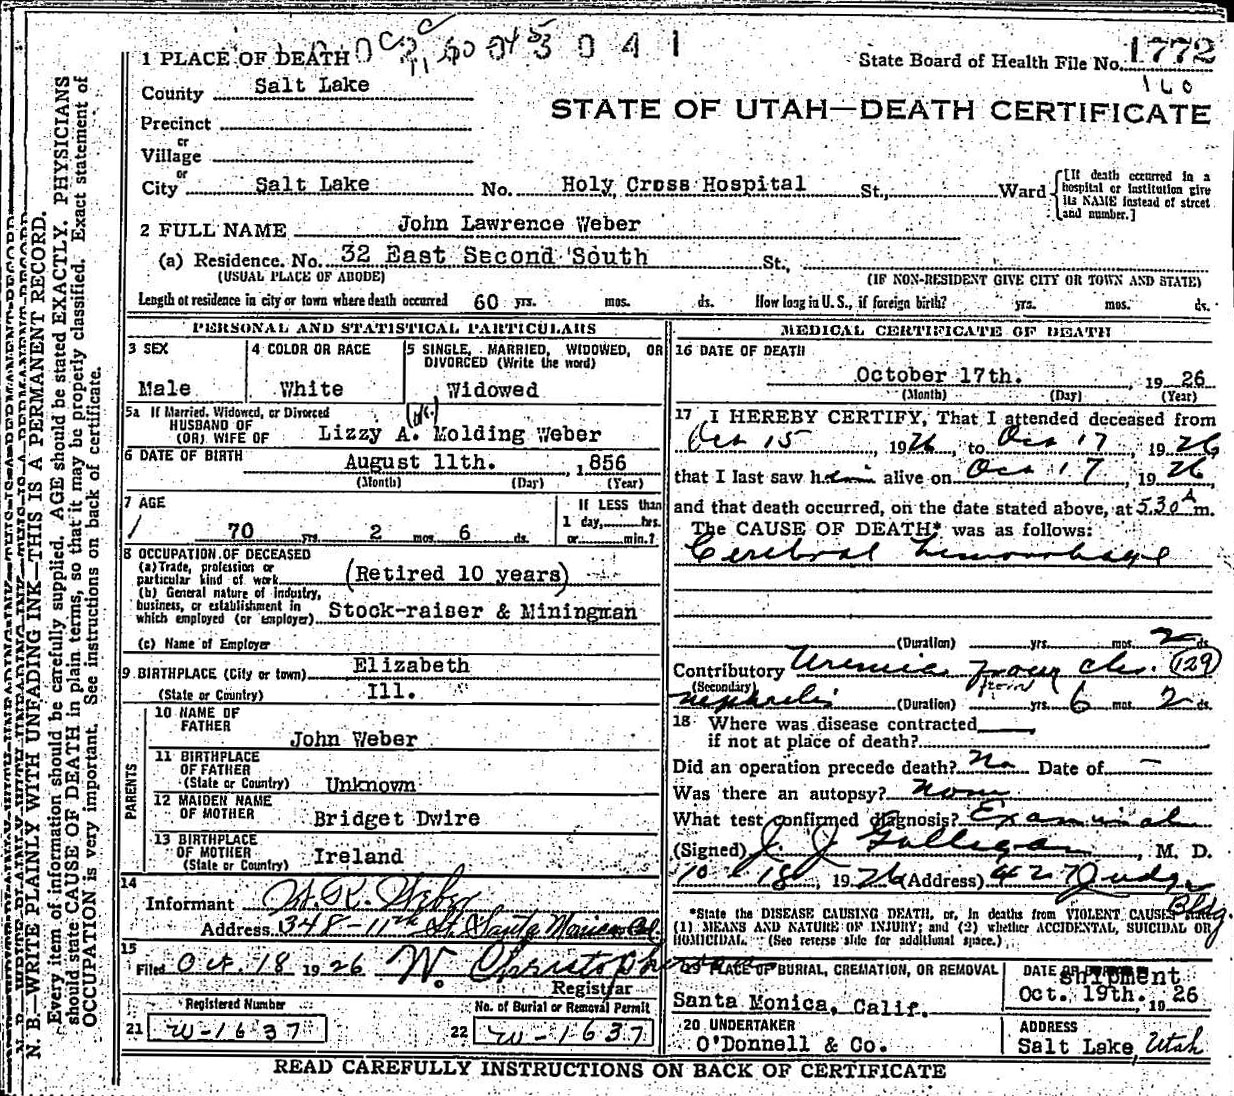 1 PLACE OF DEATH
State Board of Health File No. 1772
County Salt Lake
160
STATE OF UTAH—DEATH CERTIFICATE
Precinct
or
Village
or
City Salt Lake No. Holy Cross Hospital St., Ward
[If death occurred in a hospital or institution give its NAME instead of street and number.]
2 FULL NAME John Lawrence Weber
(a) Residence. No. 32 East Second South St.,
(USUAL PLACE OF ABODE) (IF NON-RESIDENT GIVE CITY OR TOWN AND STATE)
Length of residence in city or town where death occurred 60 yrs. mos. ds. How long in U. S., if foreign birth? yrs. mos. ds.
PERSONAL AND STATISTICAL PARTICULARS
3 SEX
Male
4 COLOR OR RACE
White
5 SINGLE, MARRIED, WIDOWED, OR DIVORCED (Write the word)
Widowed
5a If Married, Widowed, or Divorced
HUSBAND OF
(OR) WIFE OF Lizzy A. Molding Weber
6 DATE OF BIRTH August 11th. , 1856
(Month) (Day) (Year)
7 AGE
70 yrs. 2 mos. 6 ds.
If LESS than
1 day, hrs.
or min.?
8 OCCUPATION OF DECEASED
(a) Trade, profession or
particular kind of work (Retired 10 years)
(b) General nature of industry,
business, or establishment in
which employed (or employer) Stock-raiser & Miningman
(c) Name of Employer
9 BIRTHPLACE (City or town) Elizabeth
(State or Country) Ill.
PARENTS
10 NAME OF
FATHER
John Weber
11 BIRTHPLACE
OF FATHER
(State or Country) Unknown
12 MAIDEN NAME
OF MOTHER Bridget Dwire
13 BIRTHPLACE
OF MOTHER
(State or Country) Ireland
14
Informant W. R. Weber
Address 348-11th St. Santa Monica Cal.
15
Filed Oct. 18 1926 W. Christopherson
Registrar
Registered Number
21 W-1637
No. of Burial or Removal Permit
22 W-1637
MEDICAL CERTIFICATE OF DEATH
16 DATE OF DEATH
October 17th. , 1926
(Month) (Day) (Year)
17 I HEREBY CERTIFY, That I attended deceased from
Oct 15 , 1926, to Oct 17 , 1926
that I last saw him alive on Oct 17 , 1926,
and that death occurred, on the date stated above, at 5.30 A m.
The CAUSE OF DEATH* was as follows:
Cerebral hemorrhage
(Duration) yrs. mos. 2 ds.
Contributory Uremia from chr. (129)
(Secondary) from
nephritis (Duration) yrs. 6 mos. 2 ds.
18 Where was disease contracted
if not at place of death?
Did an operation precede death? No Date of —
Was there an autopsy? None
What test confirmed diagnosis?
(Signed) J. J. Galligan, M. D.
10-18, 1926 (Address) 427 Judge Bldg.
*State the DISEASE CAUSING DEATH, or, in deaths from VIOLENT CAUSES, state
(1) MEANS AND NATURE OF INJURY; and (2) whether ACCIDENTAL, SUICIDAL OR
HOMICIDAL. (See reverse side for additional space.)
19 PLACE OF BURIAL, CREMATION, OR REMOVAL
Santa Monica, Calif.
DATE OF shipment
Oct. 19th. 1926
20 UNDERTAKER
O'Donnell & Co.
ADDRESS
Salt Lake, Utah
READ CAREFULLY INSTRUCTIONS ON BACK OF CERTIFICATE
N. B.—WRITE PLAINLY WITH UNFADING INK—THIS IS A PERMANENT RECORD.
Every item of information should be carefully supplied. AGE should be stated EXACTLY. PHYSICIANS
should state CAUSE OF DEATH in plain terms, so that it may be properly classified. Exact statement of
OCCUPATION is very important. See instructions on back of certificate.